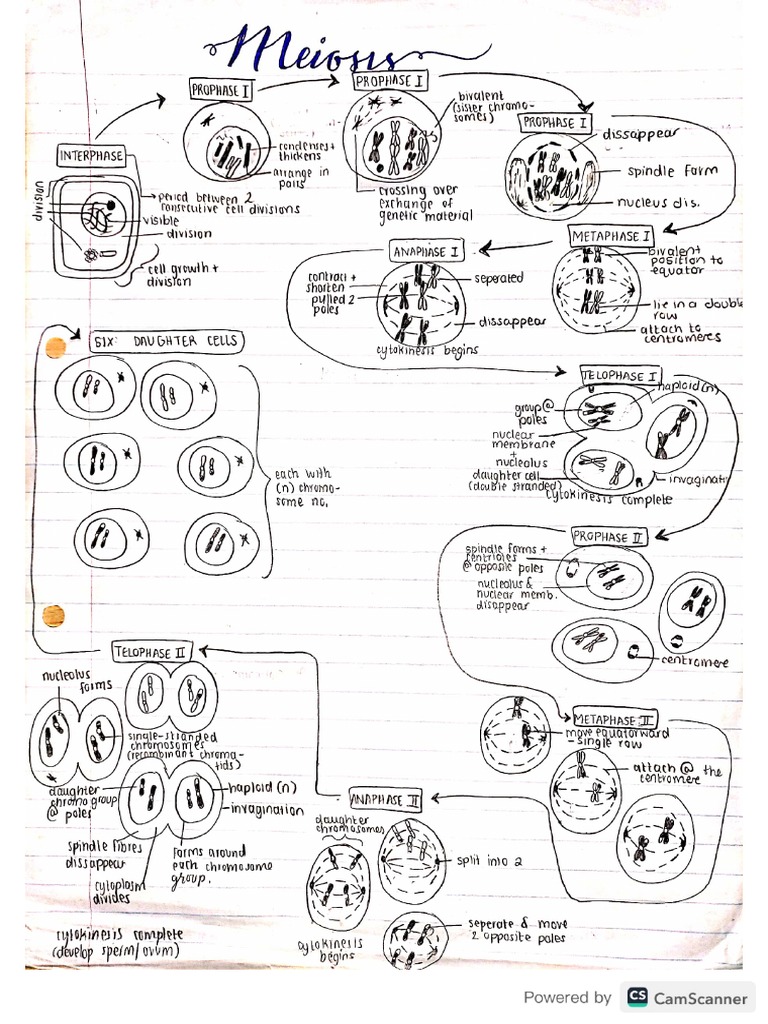 Meiosis
PROPHASE I
PROPHASE I
bivalent
(sister chromo-
somes)
PROPHASE I
dissappear
INTERPHASE
condenses +
thickens
arrange in
pairs
spindle form
division
period between 2
consecutive cell divisions
visible
division
crossing over
exchange of
genetic material
nucleus dis.
cell growth +
division
ANAPHASE I
METAPHASE I
bivalent
position to
equator
contract +
shorten
pulled 2
poles
seperated
lie in a double
row
dissappear
attach to
centromeres
cytokinesis begins
SIX: DAUGHTER CELLS
TELOPHASE I
haploid (n)
group @
poles
nuclear
membrane
+
nucleolus
daughter cell
(double stranded)
invaginati
cytokinesis complete
each with
(n) chromo-
some no.
PROPHASE II
spindle forms +
centrioles
@ opposite poles
nucleolus &
nuclear memb.
disappear
centromere
TELOPHASE II
nucleolus
forms
METAPHASE II
move equatorward
- single row
single-stranded
chromosomes
(recombinant chroma-
tids)
attach @ the
centromere
daughter
chromo group
@ poles
haploid (n)
invagination
ANAPHASE II
daughter
chromosomes
spindle fibres
dissappear
forms around
each chromosome
group.
split into 2
cytoplasm
divides
cytokinesis complete
(develop sperm/ovum)
cytokinesis
begins
seperate & move
2 opposite poles
Powered by CS CamScanner